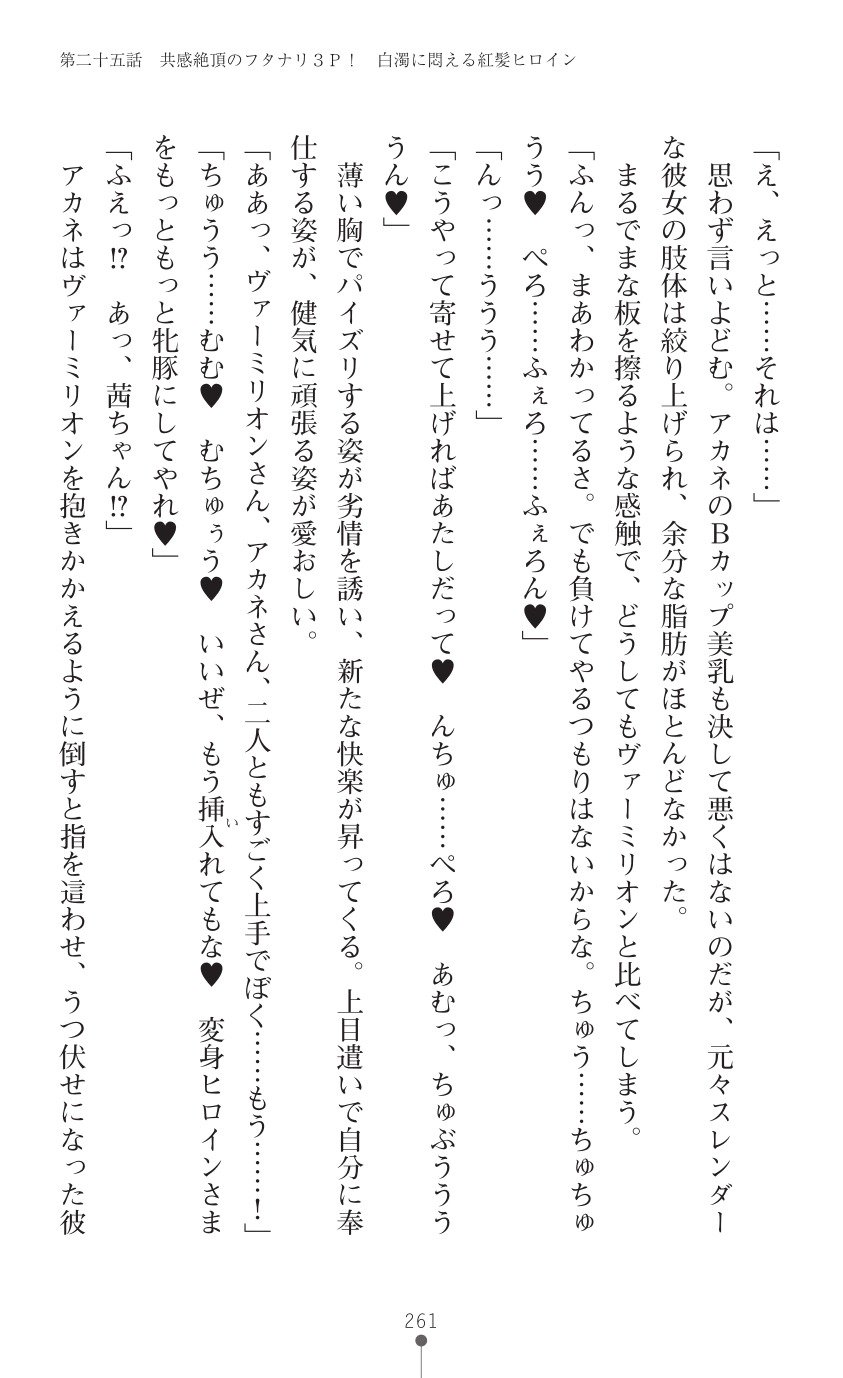 第二十五話　共感絶頂のフタナリ３Ｐ！　白濁に悶える紅髪ヒロイン
「え、えっと……それは……」
　思わず言いよどむ。アカネのＢカップ美乳も決して悪くはないのだが、元々スレンダー
な彼女の肢体は絞り上げられ、余分な脂肪がほとんどなかった。
　まるでまな板を擦るような感触で、どうしてもヴァーミリオンと比べてしまう。
「ふんっ、まあわかってるさ。でも負けてやるつもりはないからな。ちゅう……ちゅちゅ
うう♥　ぺろ……ふぇろ……ふぇろん♥」
「んっ……ううう……」
「こうやって寄せて上げればあたしだって♥　んちゅ……ぺろ♥　あむっ、ちゅぶううう
うん♥」
　薄い胸でパイズリする姿が劣情を誘い、新たな快楽が昇ってくる。上目遣いで自分に奉
仕する姿が、健気に頑張る姿が愛おしい。
「ああっ、ヴァーミリオンさん、アカネさん、二人ともすごく上手でぼく……もう……！」
「ちゅうう……むむ♥　むちゅぅう♥　いいぜ、もう挿入れてもな♥　変身ヒロインさま
い
をもっともっと牝豚にしてやれ♥」
「ふえっ!?　あっ、茜ちゃん!?」
　アカネはヴァーミリオンを抱きかかえるように倒すと指を這わせ、うつ伏せになった彼
261